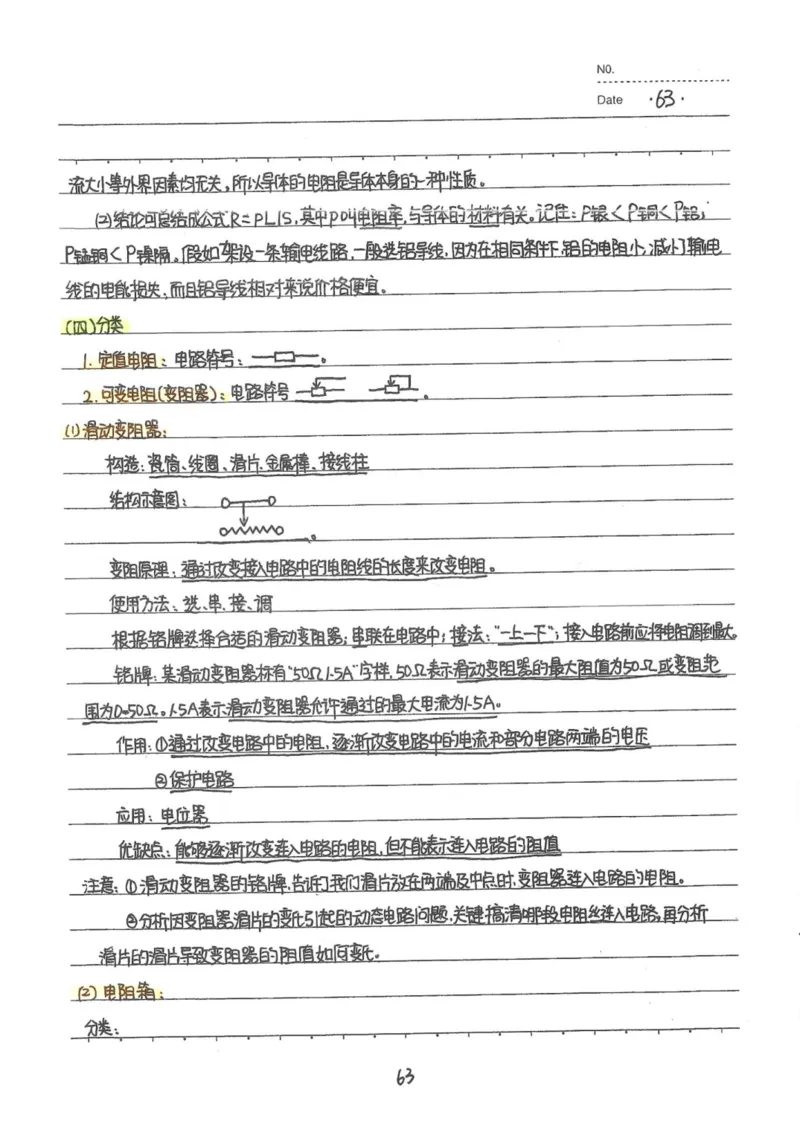 NO.
Date ·63·
流大小等外界因素均无关,所以导体的电阻是导体本身的一种性质。
(2)结论可总结成公式R=ρL/S,其中ρ叫电阻率,与导体的材料有关。记住:ρ银<ρ铜<ρ铝,
ρ锰铜<ρ镍隔。假如架设一条输电线路,一般选铝导线,因为在相同条件下,铝的电阻小,减小了输电
线的电能损失,而且铝导线相对来说价格便宜。
(四)分类
1.定值电阻:电路符号: 。
2.可变电阻(变阻器):电路符号 。
(1)滑动变阻器:
构造:瓷筒、线圈、滑片、金属棒、接线柱
结构示意图: 。
变阻原理:通过改变接入电路中的电阻线的长度来改变电阻。
使用方法:选、串、接、调
根据铭牌选择合适的滑动变阻器;串联在电路中;接法:“一上一下”;接入电路前应将电阻调到最大。
铭牌:某滑动变阻器标有“50Ω1.5A”字样,50Ω表示滑动变阻器的最大阻值为50Ω或变阻范
围为0-50Ω。1.5A表示滑动变阻器允许通过的最大电流为1.5A。
作用:①通过改变电路中的电阻,逐渐改变电路中的电流和部分电路两端的电压
②保护电路
应用:电位器
优缺点:能够逐渐改变连入电路的电阻,但不能表示连入电路的阻值
注意:①滑动变阻器的铭牌,告诉了我们滑片放在两端及中点时,变阻器连入电路的电阻。
②分析因变阻器滑片的变化引起的动态电路问题,关键搞清哪段电阻丝连入电路,再分析
滑片的滑片导致变阻器的阻值如何变化。
(2)电阻箱:
分类:
63